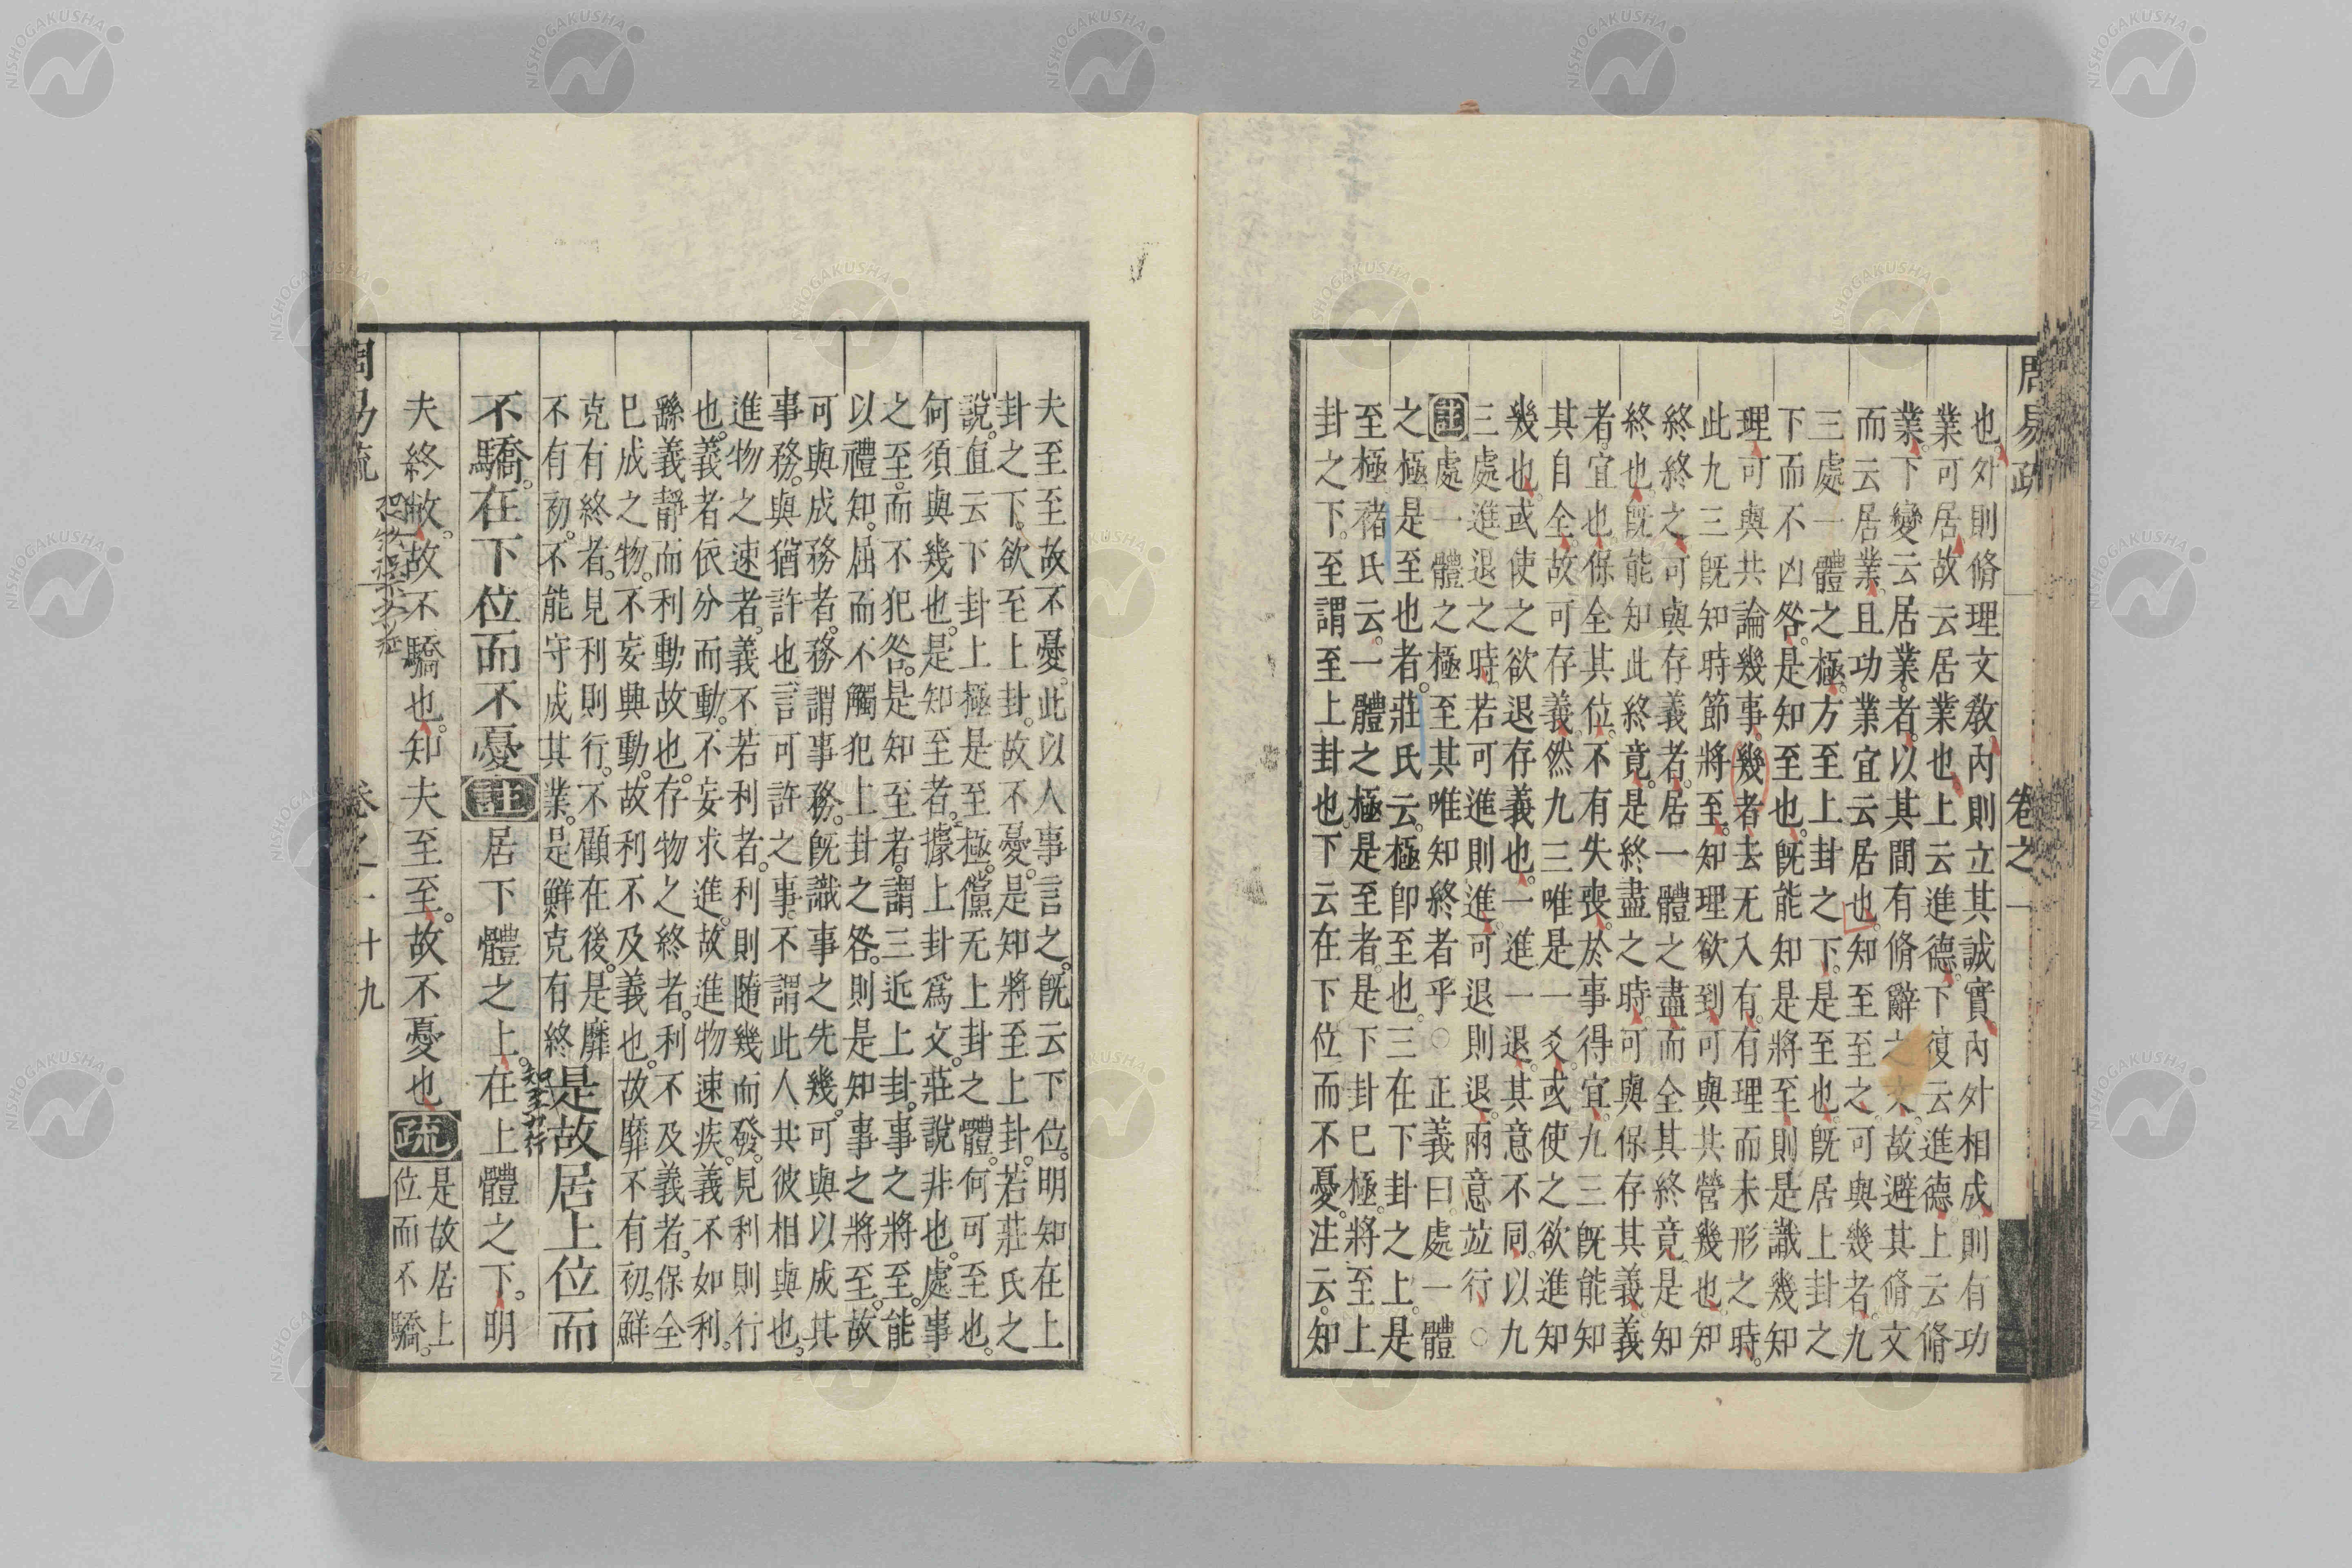 周易疏 卷之一
也。外則脩理文敎。內則立其誠實。內外相成。則有功
業可居。故云居業也。上云進德。下復云進德。上云脩
業。下變云居業者。以其間有脩辭之文。故避其脩文
而云居業。且功業宜云居也。知至至之可與幾者。九
三處一體之極。方至上卦之下。是至也。旣居上卦之
下而不凶咎。是知至也。旣能知是將至。則是識幾知
理。可與共論幾事。幾者去无入有。有理而未形之時。
此九三旣知時節將至。知理欲到。可與共營幾也。知
終終之可與存義者。居一體之盡。而全其終竟。是知
終也。旣能知此終竟。是終盡之時。可與保存其義。義
者宜也。保全其位。不有失喪。於事得宜。九三旣能知
其自全。故可存義。然九三唯是一爻。或使之欲進知
幾也。或使之欲退存義也。一進一退。其意不同。以九
三處進退之時。若可進則進。可退則退。兩意並行○
註處一體之極至其唯知終者乎○正義曰處一體
之極是至也者。莊氏云。極卽至也。三在下卦之上。是
至極。褚氏云。一體之極是至者。是下卦已極。將至上
卦之下。至謂至上卦也。下云在下位而不憂。注云。知
夫至至故不憂。此以人事言之。旣云下位。明知在上
卦之下。欲至上卦。故不憂。是知將至上卦。若莊氏之
說。直云下卦上極是至極。儻无上卦之體。何可至也。
何須與幾也。是知至者。據上卦爲文。莊說非也。處事
之至。而不犯咎。是知至者。謂三近上卦。事之將至。能
以禮知。屈而不觸犯上卦之咎。則是知事之將至。故
可與成務者。務謂事務。旣識事之先幾。可與以成其
事務。與猶許也。言可許之事。不謂此人共彼相與也。
進物之速者。義不若利者。利則隨幾而發。見利則行
也。義者依分而動。不妄求進。故進物速疾。義不如利。
繇義靜而利動故也。存物之終者。利不及義者。保全
已成之物。不妄興動。故利不及義也。故靡不有初。鮮
克有終者。見利則行。不顧在後。是靡
不有初。不能守成其業。是鮮克有終
是故居上位而
不驕。在下位而不憂註居下體之上。在上體之下。明
夫終敝。故不驕也。知夫至至。故不憂也疏是故居上
位而不驕。
周易疏 卷之一 十九